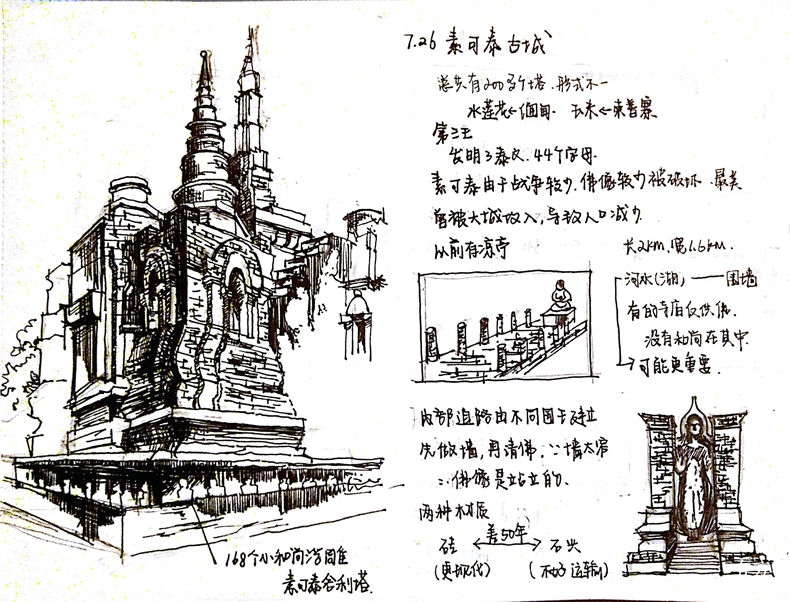 7.26 素可泰古城
总共有200多个塔.形式不一
水莲花←佃 玉米←柬普寨
第三王
发明了泰文.44个字母.
素可泰由于战争较少.佛像较少被破坏.最美
曾被大城攻入,导致人口减少.
以前有凉亭
长2km.宽1.6km.
河水(湖)——围墙
有的寺庙仅供佛.
没有和尚在其中.
→可能更重要.
内部道路由不同国王建立
先做墙,再请佛,∵墙太窄
∴佛像是站立的.
两种材质
砖 ←差50年→ 石头
(更现代) (不好运输)
168个小和尚浮雕
素可泰舍利塔.